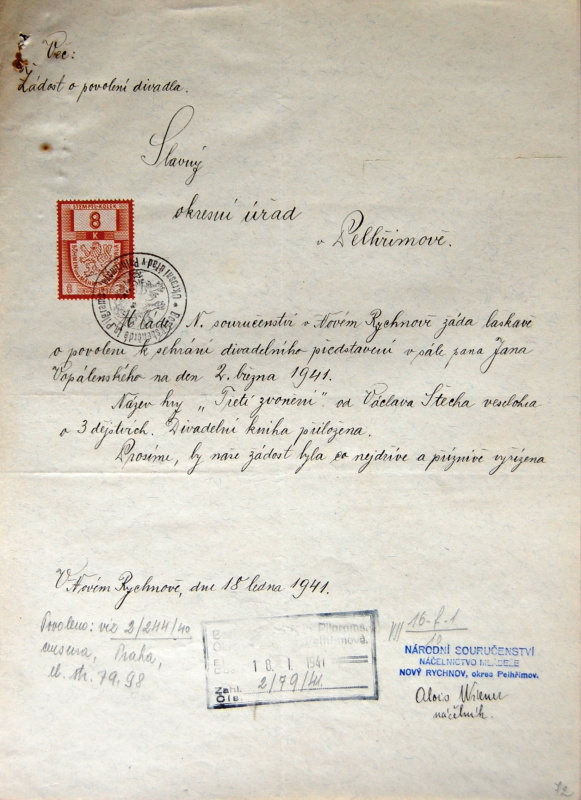 Věc:
Žádost o povolení divadla.
Slavný
okresní úřad
v Pelhřimově.
STEMPEL-KOLEK
8
K
8
Okresní úřad v
Mládež N. souručenství v Novém Rychnově žádá laskavě
o povolení k sehrání divadelního představení v sále pana Jana
Vopálenského na den 2. března 1941.
Název hry „Třetí zvonění" od Václava Štecha veselohra
o 3 dějstvích. Divadelní kniha přiložena.
Prosíme, by naše žádost byla co nejdříve a příznivě vyřízena
V Novém Rychnově, dne 18 ledna 1941.
Povoleno: viz 2/244/40
censura, Praha,
čl. str. 79, 98
Pilgrams.
Pelhřimově.
18. I. 1941
2/79/41
Zahl.
Čís.
III 16-f-1
10
NÁRODNÍ SOURUČENSTVÍ
NÁČELNICTVO MLÁDEŽE
NOVÝ RYCHNOV, okres Pelhřimov.
Alois
náčelník.
72